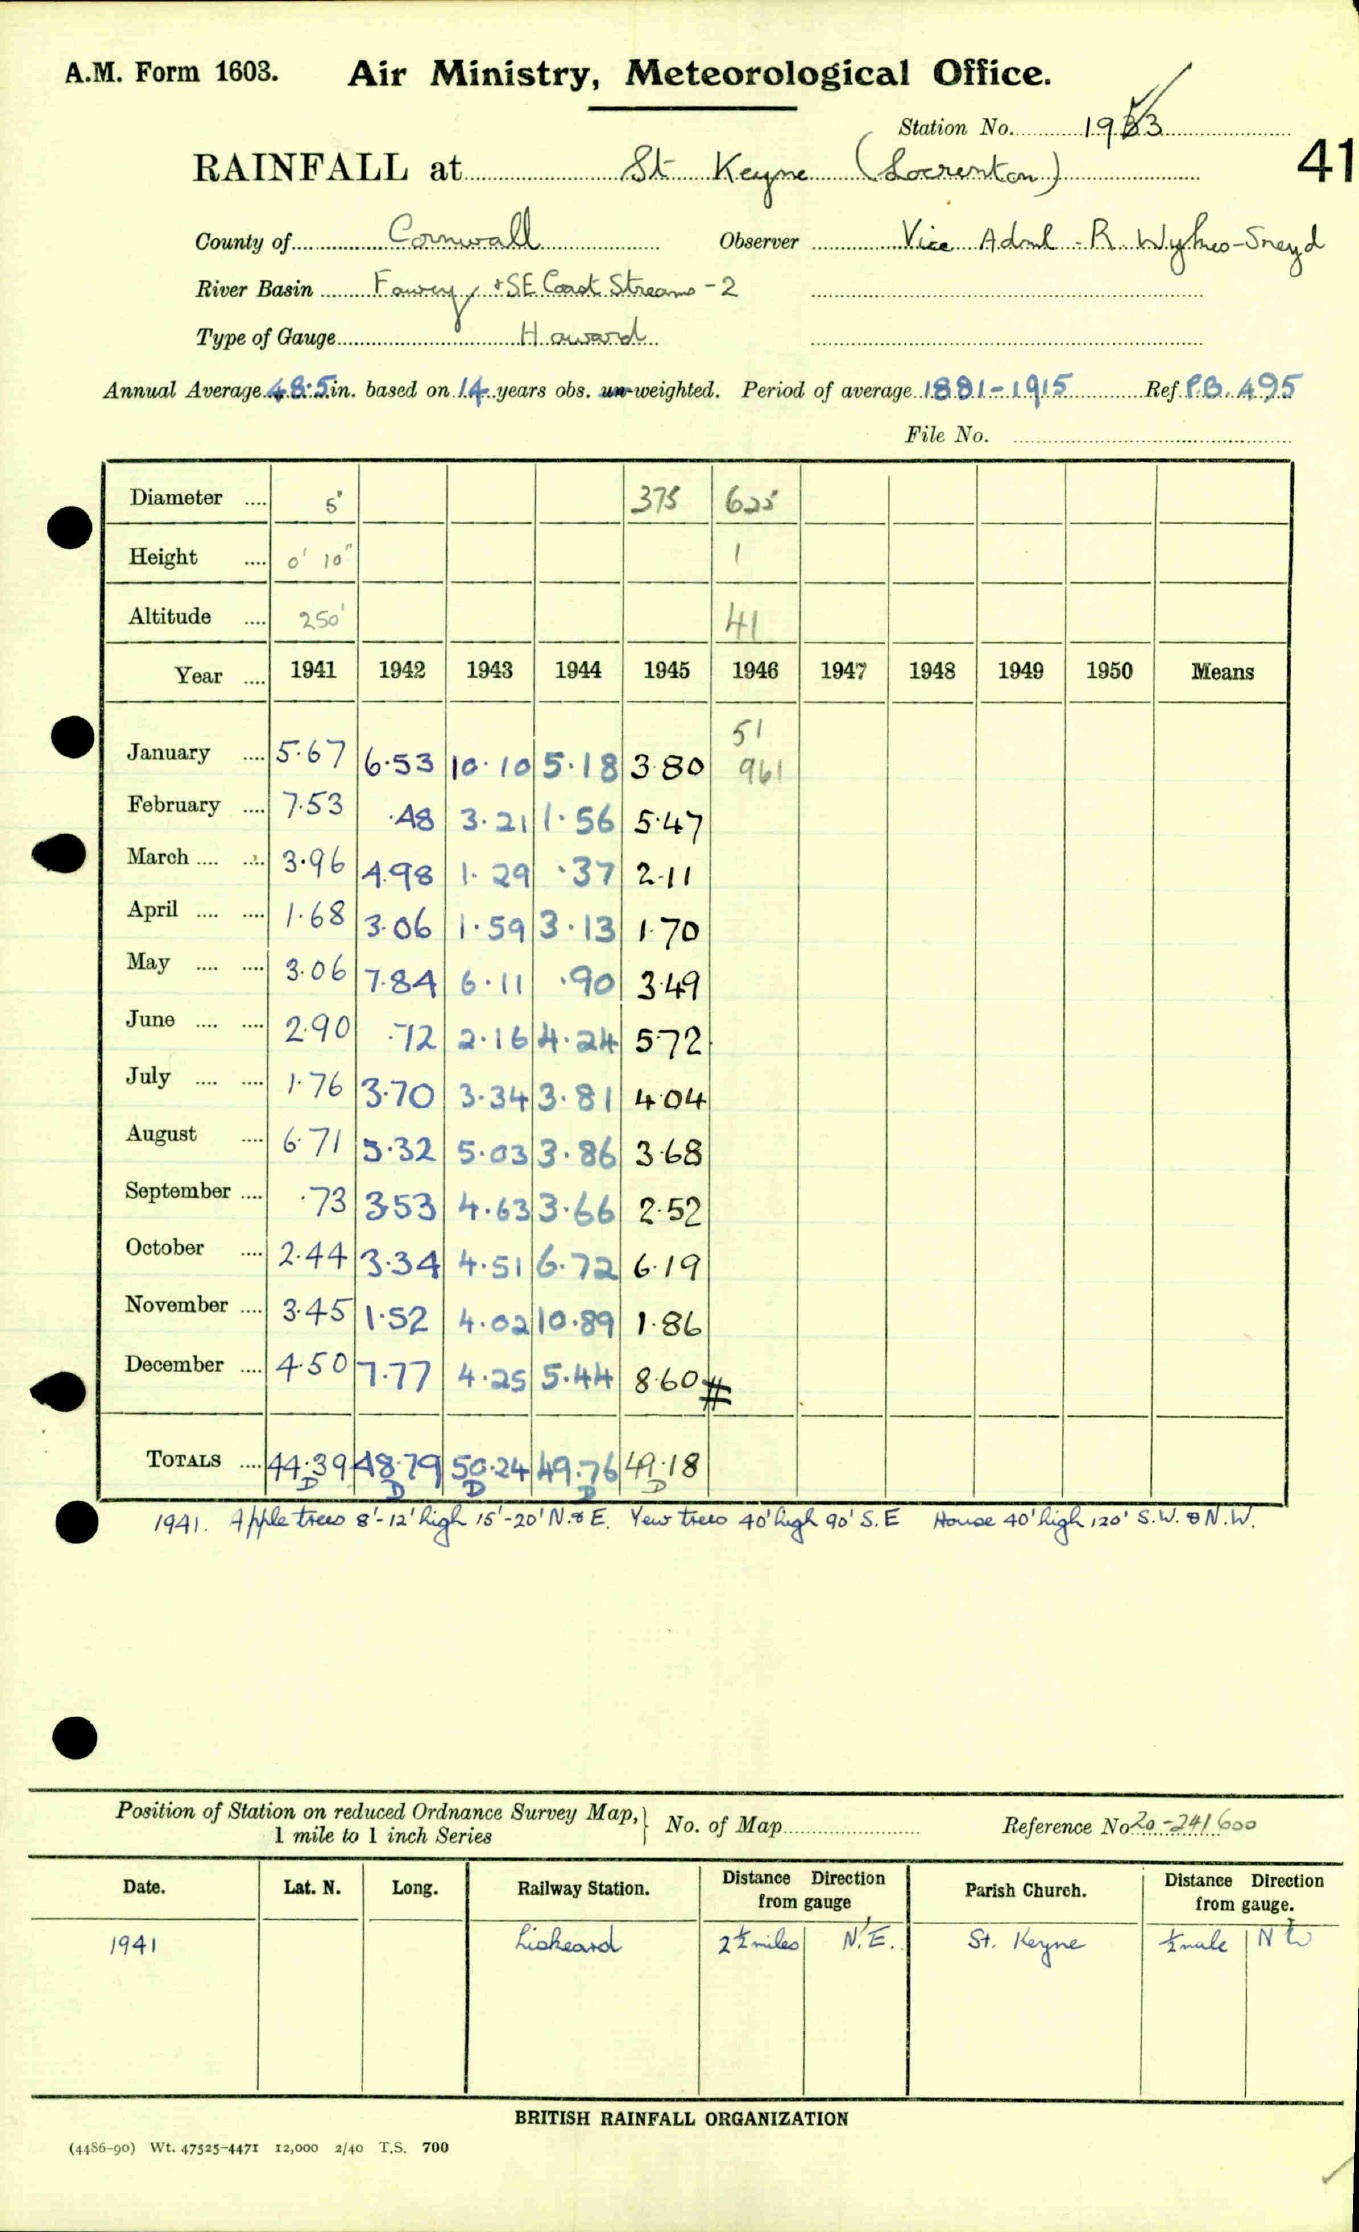 A.M. Form 1603. Air Ministry, Meteorological Office.
Station No. 1953
41
RAINFALL at St Keyne (Locrenton)
County of Cornwall Observer Vice Adml R Wykes-Sneyd
River Basin Fowey, & SE Coast Streams - 2
Type of Gauge Howard
Annual Average 48.5 in. based on 14 years obs. un-weighted. Period of average 1881-1915 Ref P.B. 495
File No.
Diameter 5" 375 625
Height 0' 10" 1
Altitude 250' 41
Year 1941 1942 1943 1944 1945 1946 1947 1948 1949 1950 Means
51
January 5.67 6.53 10.10 5.18 3.80 961
February 7.53 .48 3.21 1.56 5.47
March 3.96 4.98 1.29 .37 2.11
April 1.68 3.06 1.59 3.13 1.70
May 3.06 7.84 6.11 .90 3.49
June 2.90 .72 2.16 4.24 5.72
July 1.76 3.70 3.34 3.81 4.04
August 6.71 5.32 5.03 3.86 3.68
September .73 3.53 4.63 3.66 2.52
October 2.44 3.34 4.51 6.72 6.19
November 3.45 1.52 4.02 10.89 1.86
December 4.50 7.77 4.25 5.44 8.60 #
TOTALS 44.39 48.79 50.24 49.76 49.18
D D D D D
1941. Apple trees 8'-12' high 15'-20' N. & E. Yew trees 40' high 90' S.E House 40' high 120' S.W. & N.W.
Position of Station on reduced Ordnance Survey Map, 1 mile to 1 inch Series } No. of Map Reference No 20-241600
Date. Lat. N. Long. Railway Station. Distance Direction from gauge Parish Church. Distance Direction from gauge.
1941 Liskeard 2½ miles N.E. St. Keyne ½ mile N W
BRITISH RAINFALL ORGANIZATION
(4486-90) Wt. 47525-4471 12,000 2/40 T.S. 700